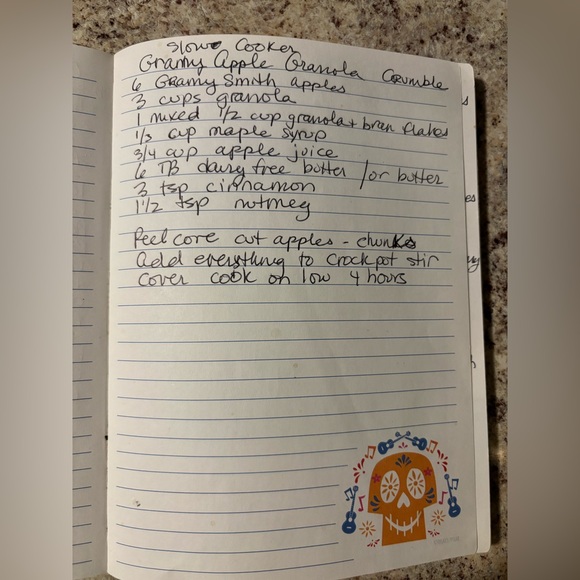 Slow Cooker
Granny Apple Granola Crumble
6 Granny Smith apples
3 cups granola
1 mixed 1/2 cup granola + bran flakes
1/3 cup maple syrup
3/4 cup apple juice
6 TB dairy free butter / or butter
3 tsp cinnamon
1 1/2 tsp nutmeg
Peel core cut apples - chunks
add everything to crockpot stir
cover cook on low 4 hours